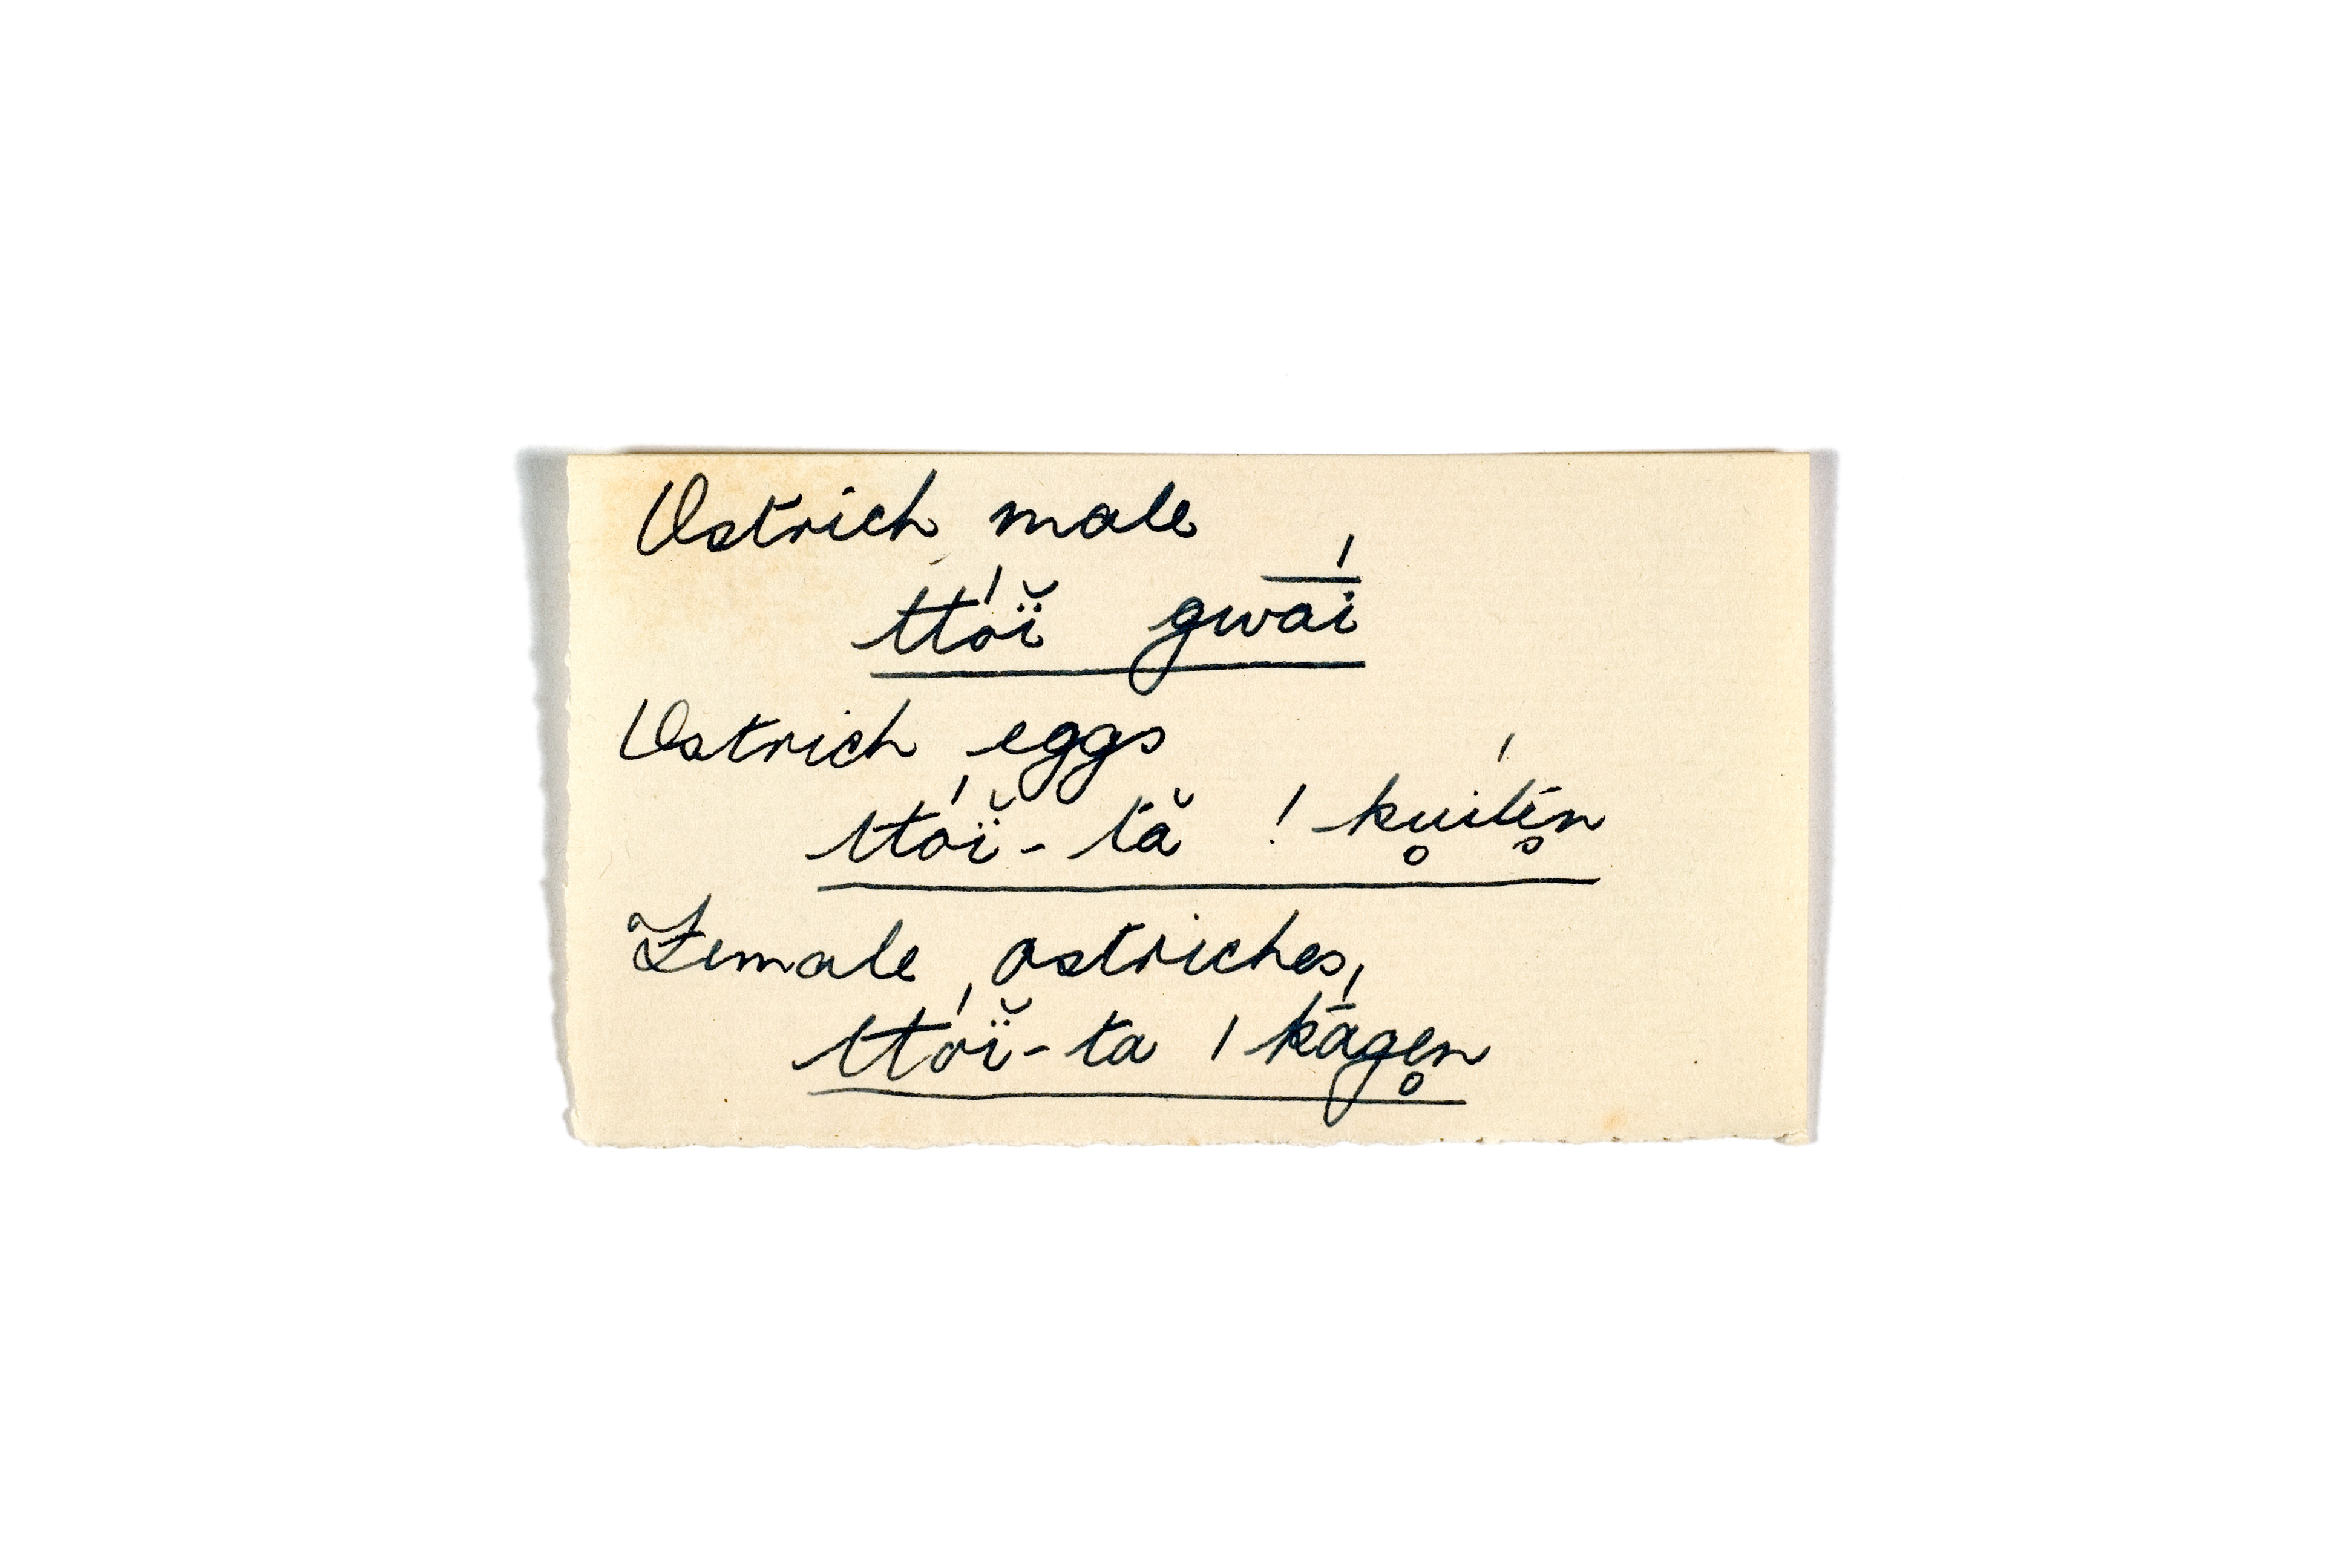 Ostrich male
ttóï̆ gwa̅í
Ostrich eggs
ttóï̆-tă !ku̥itḗn̥
Female ostriches,
ttóï̆-ta |kā́ge̥n